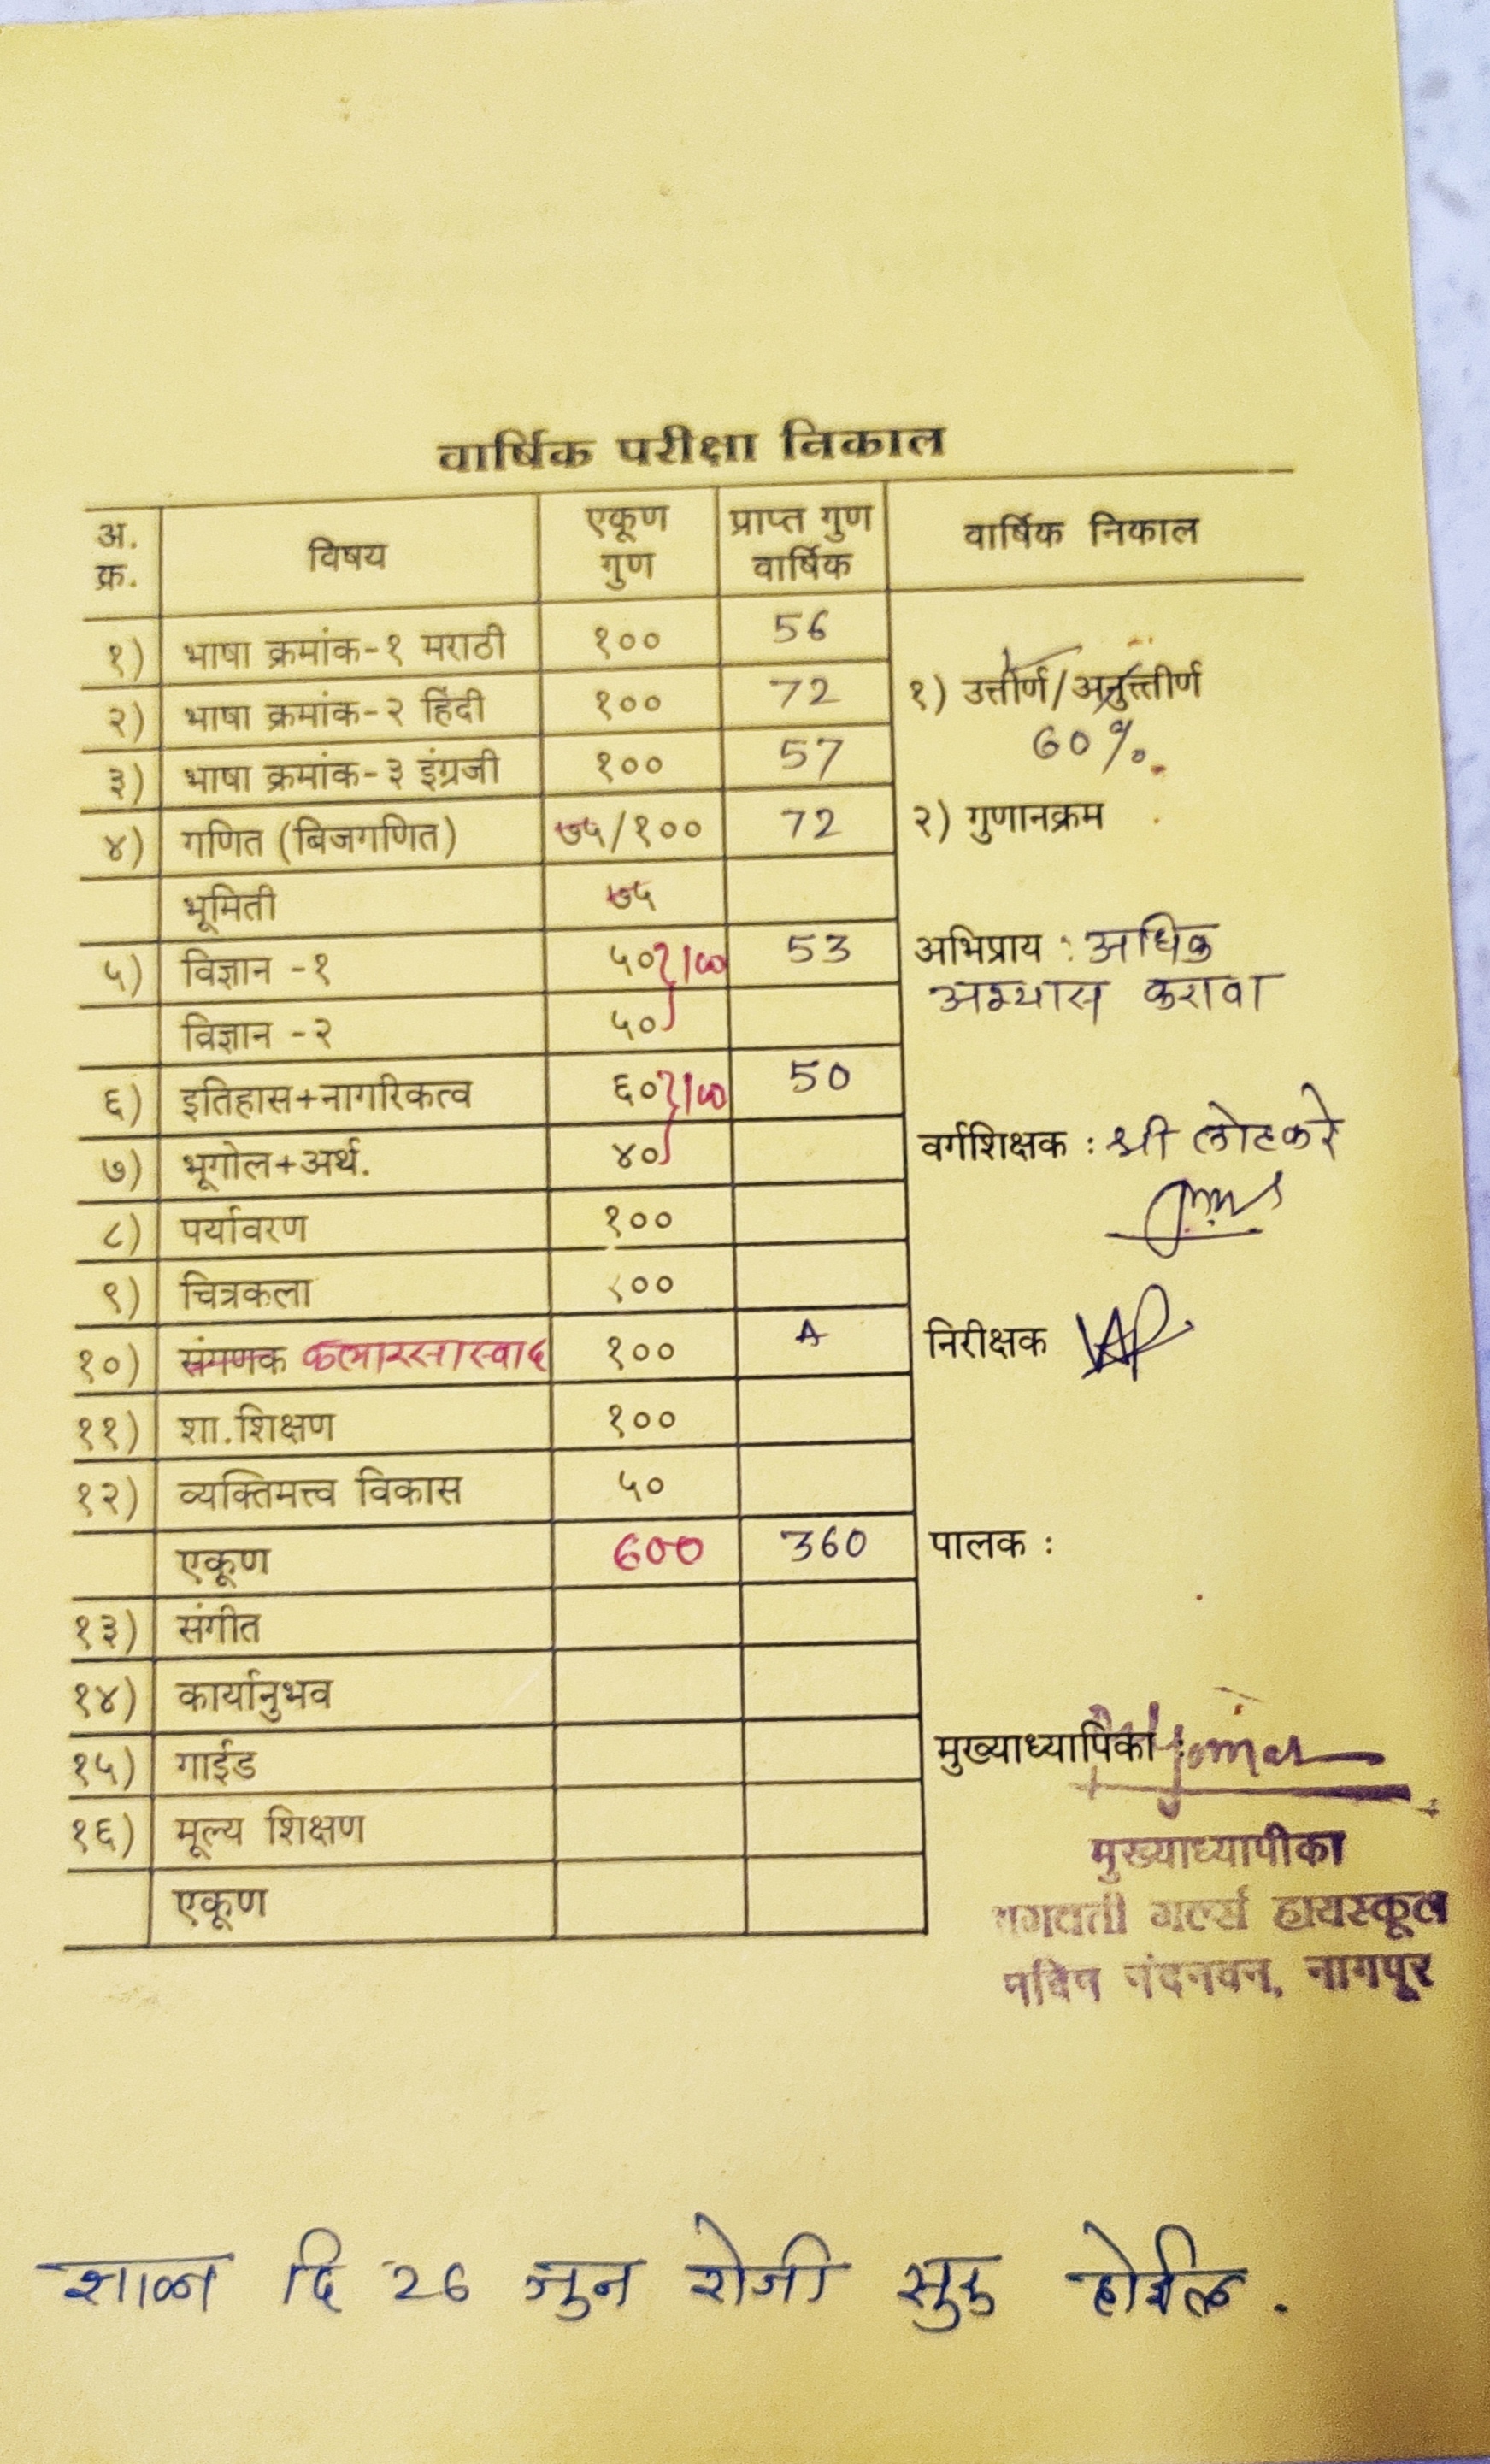 वार्षिक परीक्षा निकाल
अ. क्र. विषय एकूण गुण प्राप्त गुण वार्षिक वार्षिक निकाल
१) भाषा क्रमांक-१ मराठी १०० 56
२) भाषा क्रमांक-२ हिंदी १०० 72
३) भाषा क्रमांक-३ इंग्रजी १०० 57
४) गणित (बिजगणित) ७५/१०० 72
भूमिती ७५
५) विज्ञान -१ ५० 100 53
विज्ञान -२ ५०
६) इतिहास+नागरिकत्व ६० 100 50
७) भूगोल+अर्थ. ४०
८) पर्यावरण १००
९) चित्रकला १००
१०) संगणक कलारसास्वाद १०० A
११) शा.शिक्षण १००
१२) व्यक्तिमत्त्व विकास ५०
एकूण 600 360
१३) संगीत
१४) कार्यानुभव
१५) गाईड
१६) मूल्य शिक्षण
एकूण
१) उत्तीर्ण/अनुत्तीर्ण
60%.
२) गुणानक्रम
अभिप्राय : अधिक
अभ्यास करावा
वर्गशिक्षक : श्री लोटकरे
निरीक्षक
पालक :
मुख्याध्यापिका :
मुख्याध्यापीका
भगवती गर्ल्स हायस्कूल
नविन नंदनवन, नागपूर
शाळा दि 26 जुन रोजी सुरु होईल.